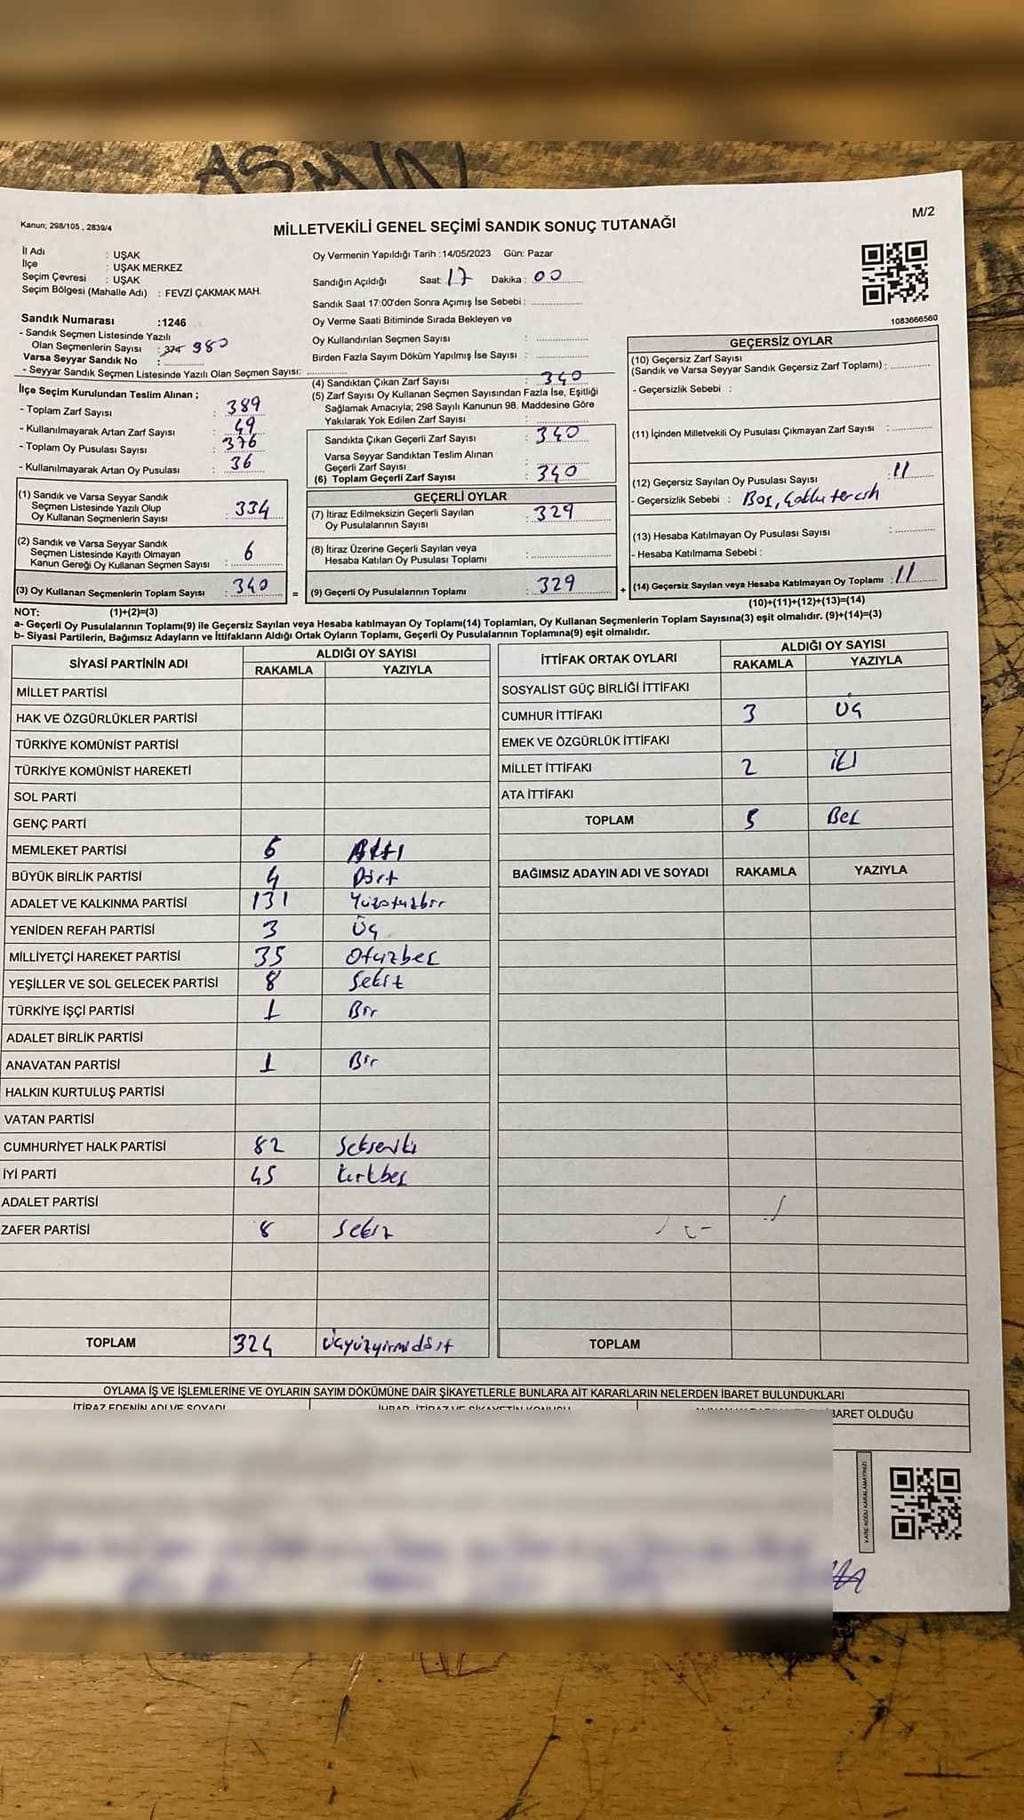 ASMIN
Kanun; 298/105 , 2839/4
MİLLETVEKİLİ GENEL SEÇİMİ SANDIK SONUÇ TUTANAĞI
M/2
İl Adı : UŞAK
İlçe : UŞAK MERKEZ
Seçim Çevresi : UŞAK
Seçim Bölgesi (Mahalle Adı) : FEVZİ ÇAKMAK MAH.
Oy Vermenin Yapıldığı Tarih :14/05/2023 Gün: Pazar
Sandığın Açıldığı Saat: 17 Dakika : 00
Sandık Saat 17:00'den Sonra Açımış İse Sebebi :
Oy Verme Saati Bitiminde Sırada Bekleyen ve
Oy Kullandırılan Seçmen Sayısı :
Birden Fazla Sayım Döküm Yapılmış İse Sayısı :
1083666560
Sandık Numarası :1246
- Sandık Seçmen Listesinde Yazılı
Olan Seçmenlerin Sayısı : 374 980
Varsa Seyyar Sandık No :
- Seyyar Sandık Seçmen Listesinde Yazılı Olan Seçmen Sayısı:
İlçe Seçim Kurulundan Teslim Alınan ;
- Toplam Zarf Sayısı : 389
- Kullanılmayarak Artan Zarf Sayısı : 49
- Toplam Oy Pusulası Sayısı : 376
- Kullanılmayarak Artan Oy Pusulası : 36
(1) Sandık ve Varsa Seyyar Sandık
Seçmen Listesinde Yazılı Olup
Oy Kullanan Seçmenlerin Sayısı : 334
(2) Sandık ve Varsa Seyyar Sandık
Seçmen Listesinde Kayıtlı Olmayan
Kanun Gereği Oy Kullanan Seçmen Sayısı : 6
(3) Oy Kullanan Seçmenlerin Toplam Sayısı : 340 =
(4) Sandıktan Çıkan Zarf Sayısı : 340
(5) Zarf Sayısı Oy Kullanan Seçmen Sayısından Fazla İse, Eşitliği
Sağlamak Amacıyla; 298 Sayılı Kanunun 98. Maddesine Göre
Yakılarak Yok Edilen Zarf Sayısı :
Sandıkta Çıkan Geçerli Zarf Sayısı : 340
Varsa Seyyar Sandıktan Teslim Alınan
Geçerli Zarf Sayısı :
(6) Toplam Geçerli Zarf Sayısı : 340
GEÇERLİ OYLAR
(7) İtiraz Edilmeksizin Geçerli Sayılan
Oy Pusulalarının Sayısı : 329
(8) İtiraz Üzerine Geçerli Sayılan veya
Hesaba Katılan Oy Pusulası Toplamı :
(9) Geçerli Oy Pusulalarının Toplamı : 329 +
GEÇERSİZ OYLAR
(10) Geçersiz Zarf Sayısı
(Sandık ve Varsa Seyyar Sandık Geçersiz Zarf Toplamı) :
- Geçersizlik Sebebi :
(11) İçinden Milletvekili Oy Pusulası Çıkmayan Zarf Sayısı :
(12) Geçersiz Sayılan Oy Pusulası Sayısı : 11
- Geçersizlik Sebebi : Boş,
(13) Hesaba Katılmayan Oy Pusulası Sayısı :
- Hesaba Katılmama Sebebi :
(14) Geçersiz Sayılan veya Hesaba Katılmayan Oy Toplamı : 11
(10)+(11)+(12)+(13)=(14)
NOT: (1)+(2)=(3)
a- Geçerli Oy Pusulasının Toplamı(9) ile Geçersiz Sayılan veya Hesaba katılmayan Oy Toplamı(14) Toplamları, Oy Kullanan Seçmenlerin Toplam Sayısına(3) eşit olmalıdır. (9)+(14)=(3)
b- Siyasi Partilerin, Bağımsız Adayların ve İttifakların Aldığı Ortak Oyların Toplamı, Geçerli Oy Pusulalarının Toplamına(9) eşit olmalıdır.
SİYASİ PARTİNİN ADI ALDIĞI OY SAYISI
RAKAMLA YAZIYLA
MİLLET PARTİSİ
HAK VE ÖZGÜRLÜKLER PARTİSİ
TÜRKİYE KOMÜNİST PARTİSİ
TÜRKİYE KOMÜNİST HAREKETİ
SOL PARTİ
GENÇ PARTİ
MEMLEKET PARTİSİ 6 Altı
BÜYÜK BİRLİK PARTİSİ 4 Dört
ADALET VE KALKINMA PARTİSİ 131 Yüzotuzbir
YENİDEN REFAH PARTİSİ 3 Üç
MİLLİYETÇİ HAREKET PARTİSİ 35 Otuzbeş
YEŞİLLER VE SOL GELECEK PARTİSİ 8 Sekiz
TÜRKİYE İŞÇİ PARTİSİ 1 Bir
ADALET BİRLİK PARTİSİ
ANAVATAN PARTİSİ 1 Bir
HALKIN KURTULUŞ PARTİSİ
VATAN PARTİSİ
CUMHURİYET HALK PARTİSİ 82 Sekseniki
İYİ PARTİ 45 Kırkbeş
ADALET PARTİSİ
ZAFER PARTİSİ 8 Sekiz
TOPLAM 324 Üçyüzyirmidört
İTTİFAK ORTAK OYLARI ALDIĞI OY SAYISI
RAKAMLA YAZIYLA
SOSYALİST GÜÇ BİRLİĞİ İTTİFAKI
CUMHUR İTTİFAKI 3 Üç
EMEK VE ÖZGÜRLÜK İTTİFAKI
MİLLET İTTİFAKI 2 İki
ATA İTTİFAKI
TOPLAM 5 Beş
BAĞIMSIZ ADAYIN ADI VE SOYADI RAKAMLA YAZIYLA
TOPLAM
OYLAMA İŞ VE İŞLEMLERİNE VE OYLARIN SAYIM DÖKÜMÜNE DAİR ŞİKAYETLERLE BUNLARA AİT KARARLARIN NELERDEN İBARET BULUNDUKLARI
İTİRAZ EDENİN ADI VE SOYADI İHBAR, İTİRAZ VE ŞİKAYETİN KONUSU İBARET OLDUĞU
KARE KODU KARALAMAYINIZ!